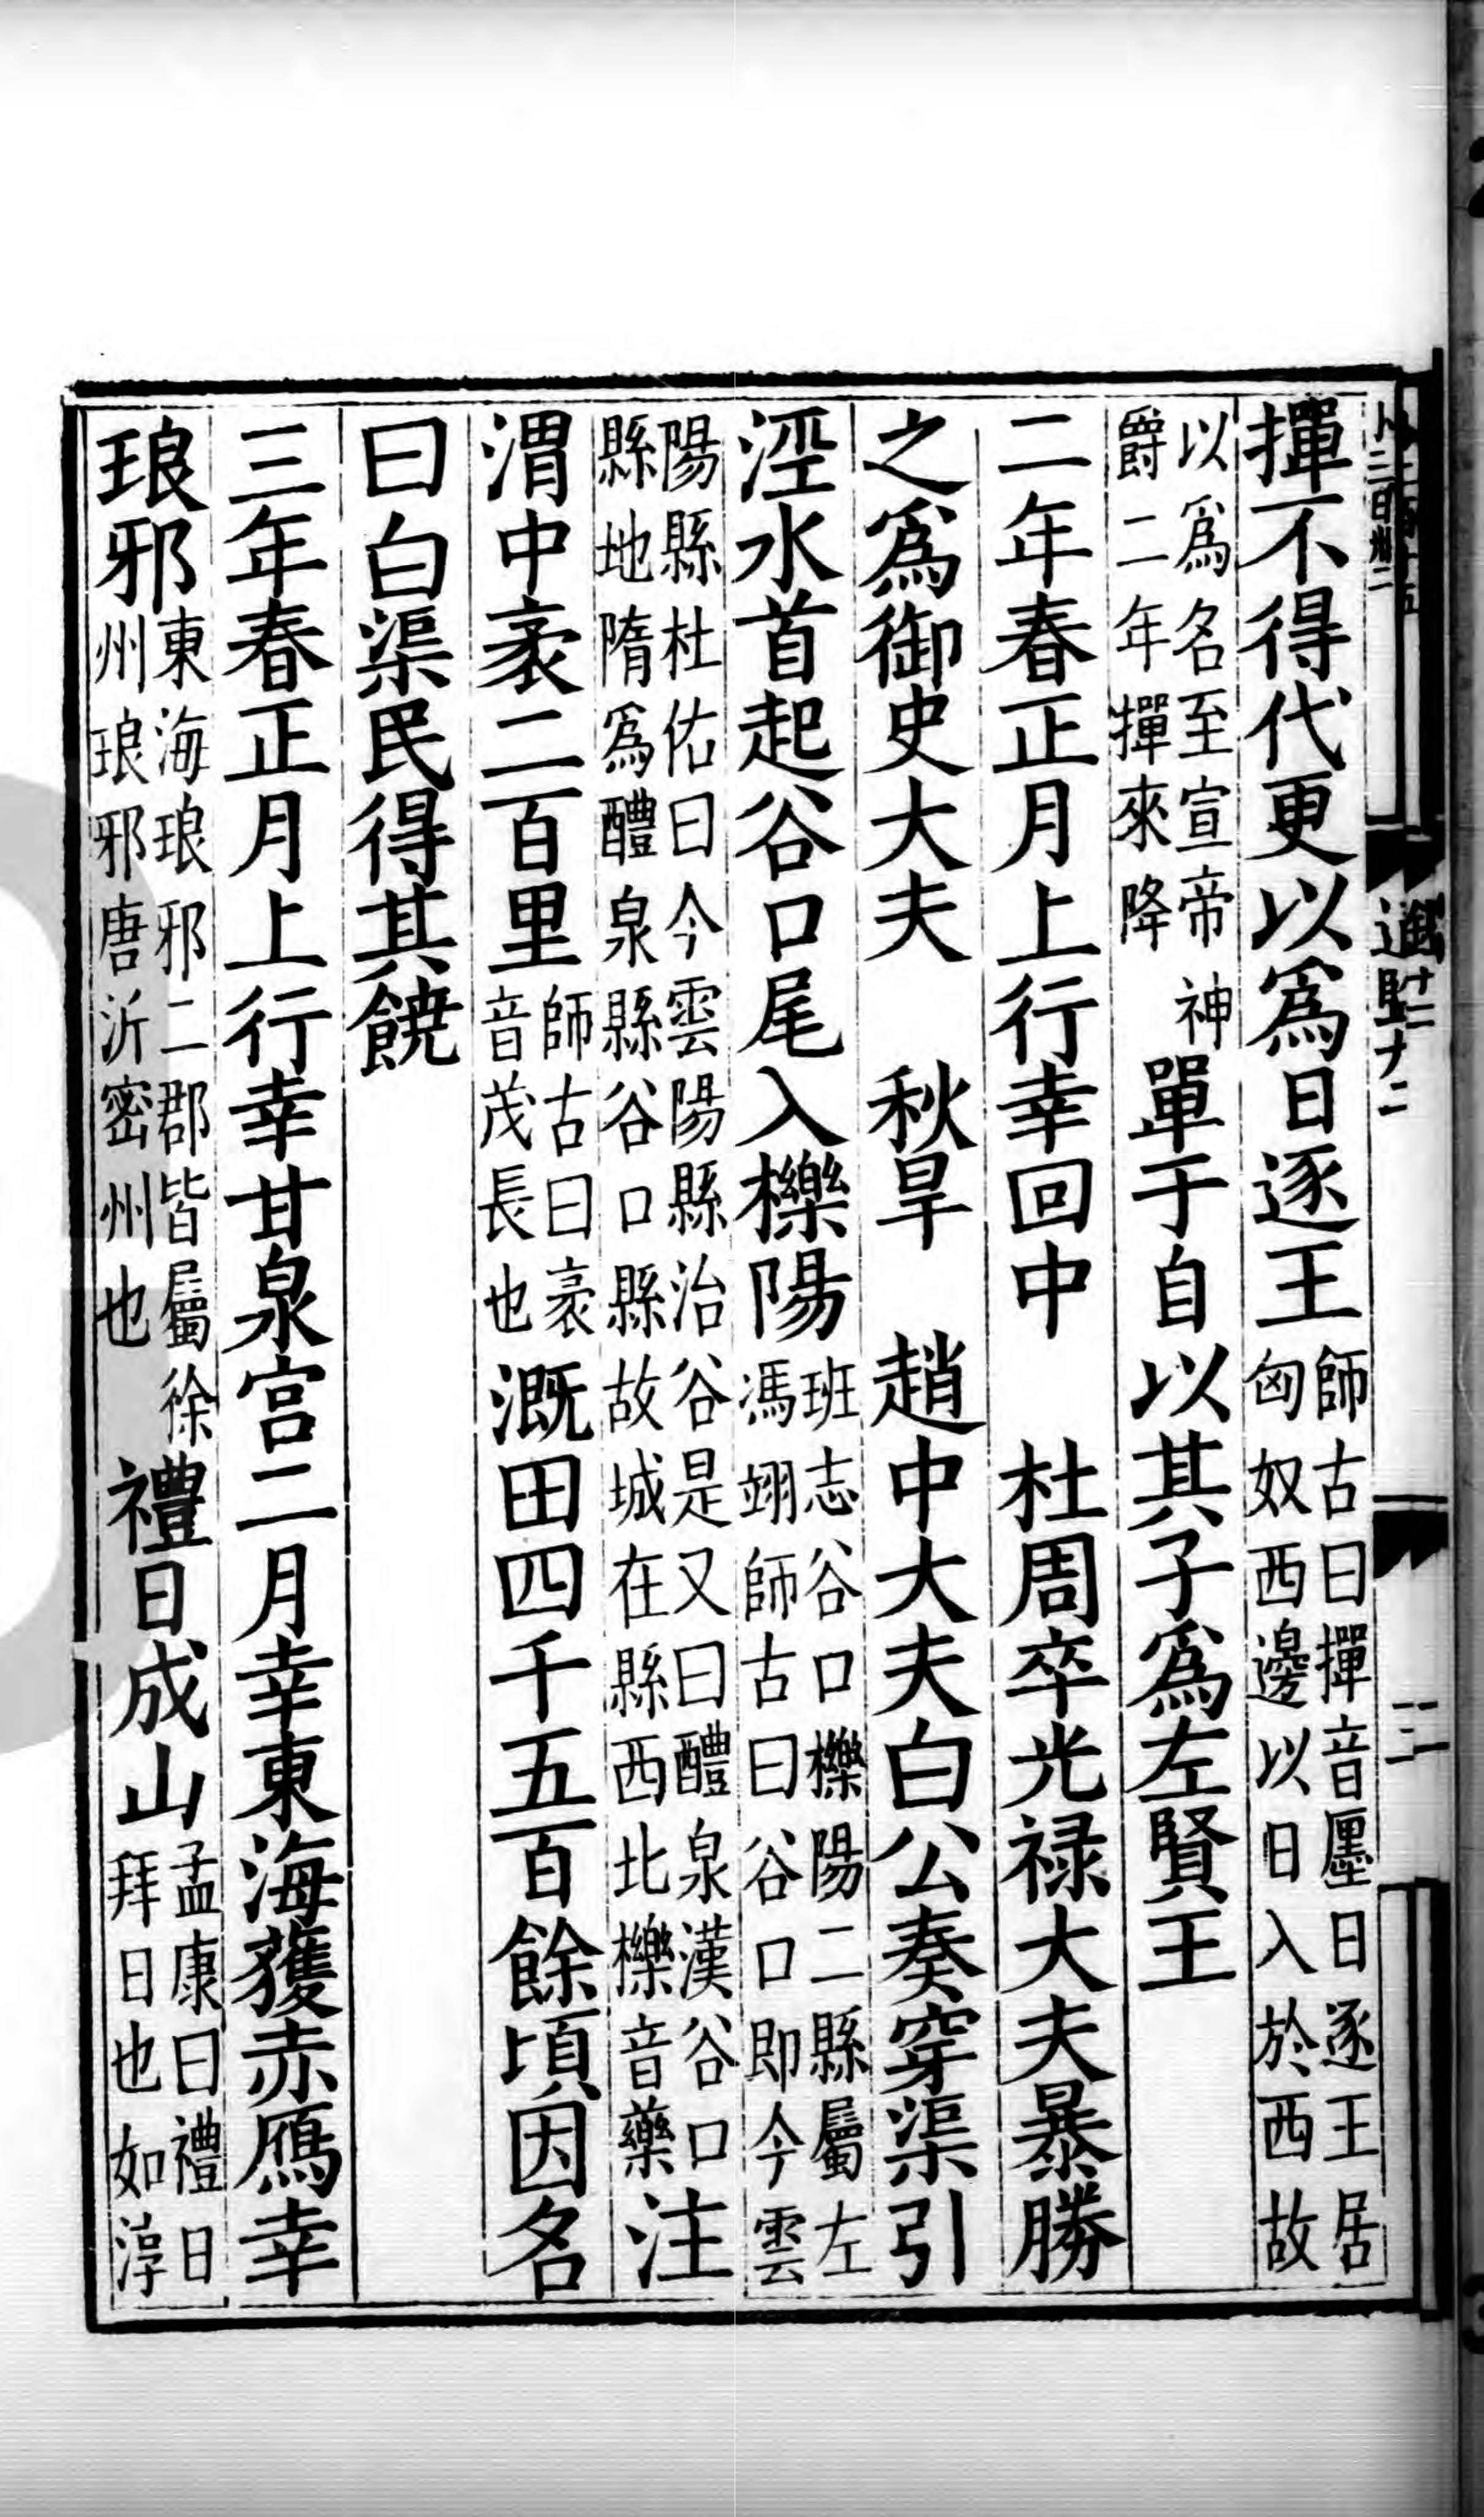 撣不得代更以爲日逐王師古曰撣音廛日逐王居匈奴西邊以日入於西故
以爲名至宣帝神爵二年撣來降單于自以其子爲左賢王
二年春正月上行幸回中　杜周卒光禄大夫暴勝
之爲御史大夫　秋旱　趙中大夫白公奏穿渠引
涇水首起谷口尾入櫟陽班志谷口櫟陽二縣屬左馮翊師古曰谷口即今雲
陽縣杜佑曰今雲陽縣治谷是又曰醴泉漢谷口縣地隋爲醴泉縣谷口縣故城在縣西北櫟音藥注
渭中袤二百里師古曰袤音茂長也溉田四千五百餘頃因名
曰白渠民得其饒
三年春正月上行幸甘泉宮二月幸東海獲赤鴈幸
琅邪東海琅邪二郡皆屬徐州琅邪唐沂密州也禮日成山孟康曰禮日拜日也如淳